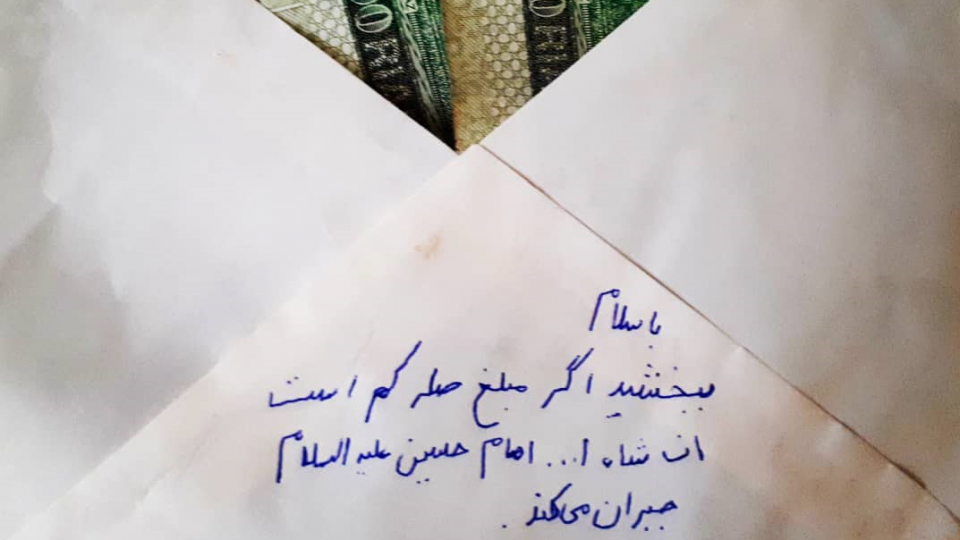 با سلام
ببخشید اگر مبلغ صله کم است
ان شاء ا... امام حسین علیه السلام
جبران می کند.